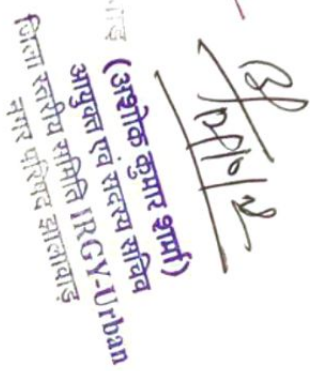 (अशोक कुमार शर्मा)
आयुक्त एवं सदस्य सचिव
जिला स्तरीय समिति IRGY-Urban
नगर परिषद झालावाड़